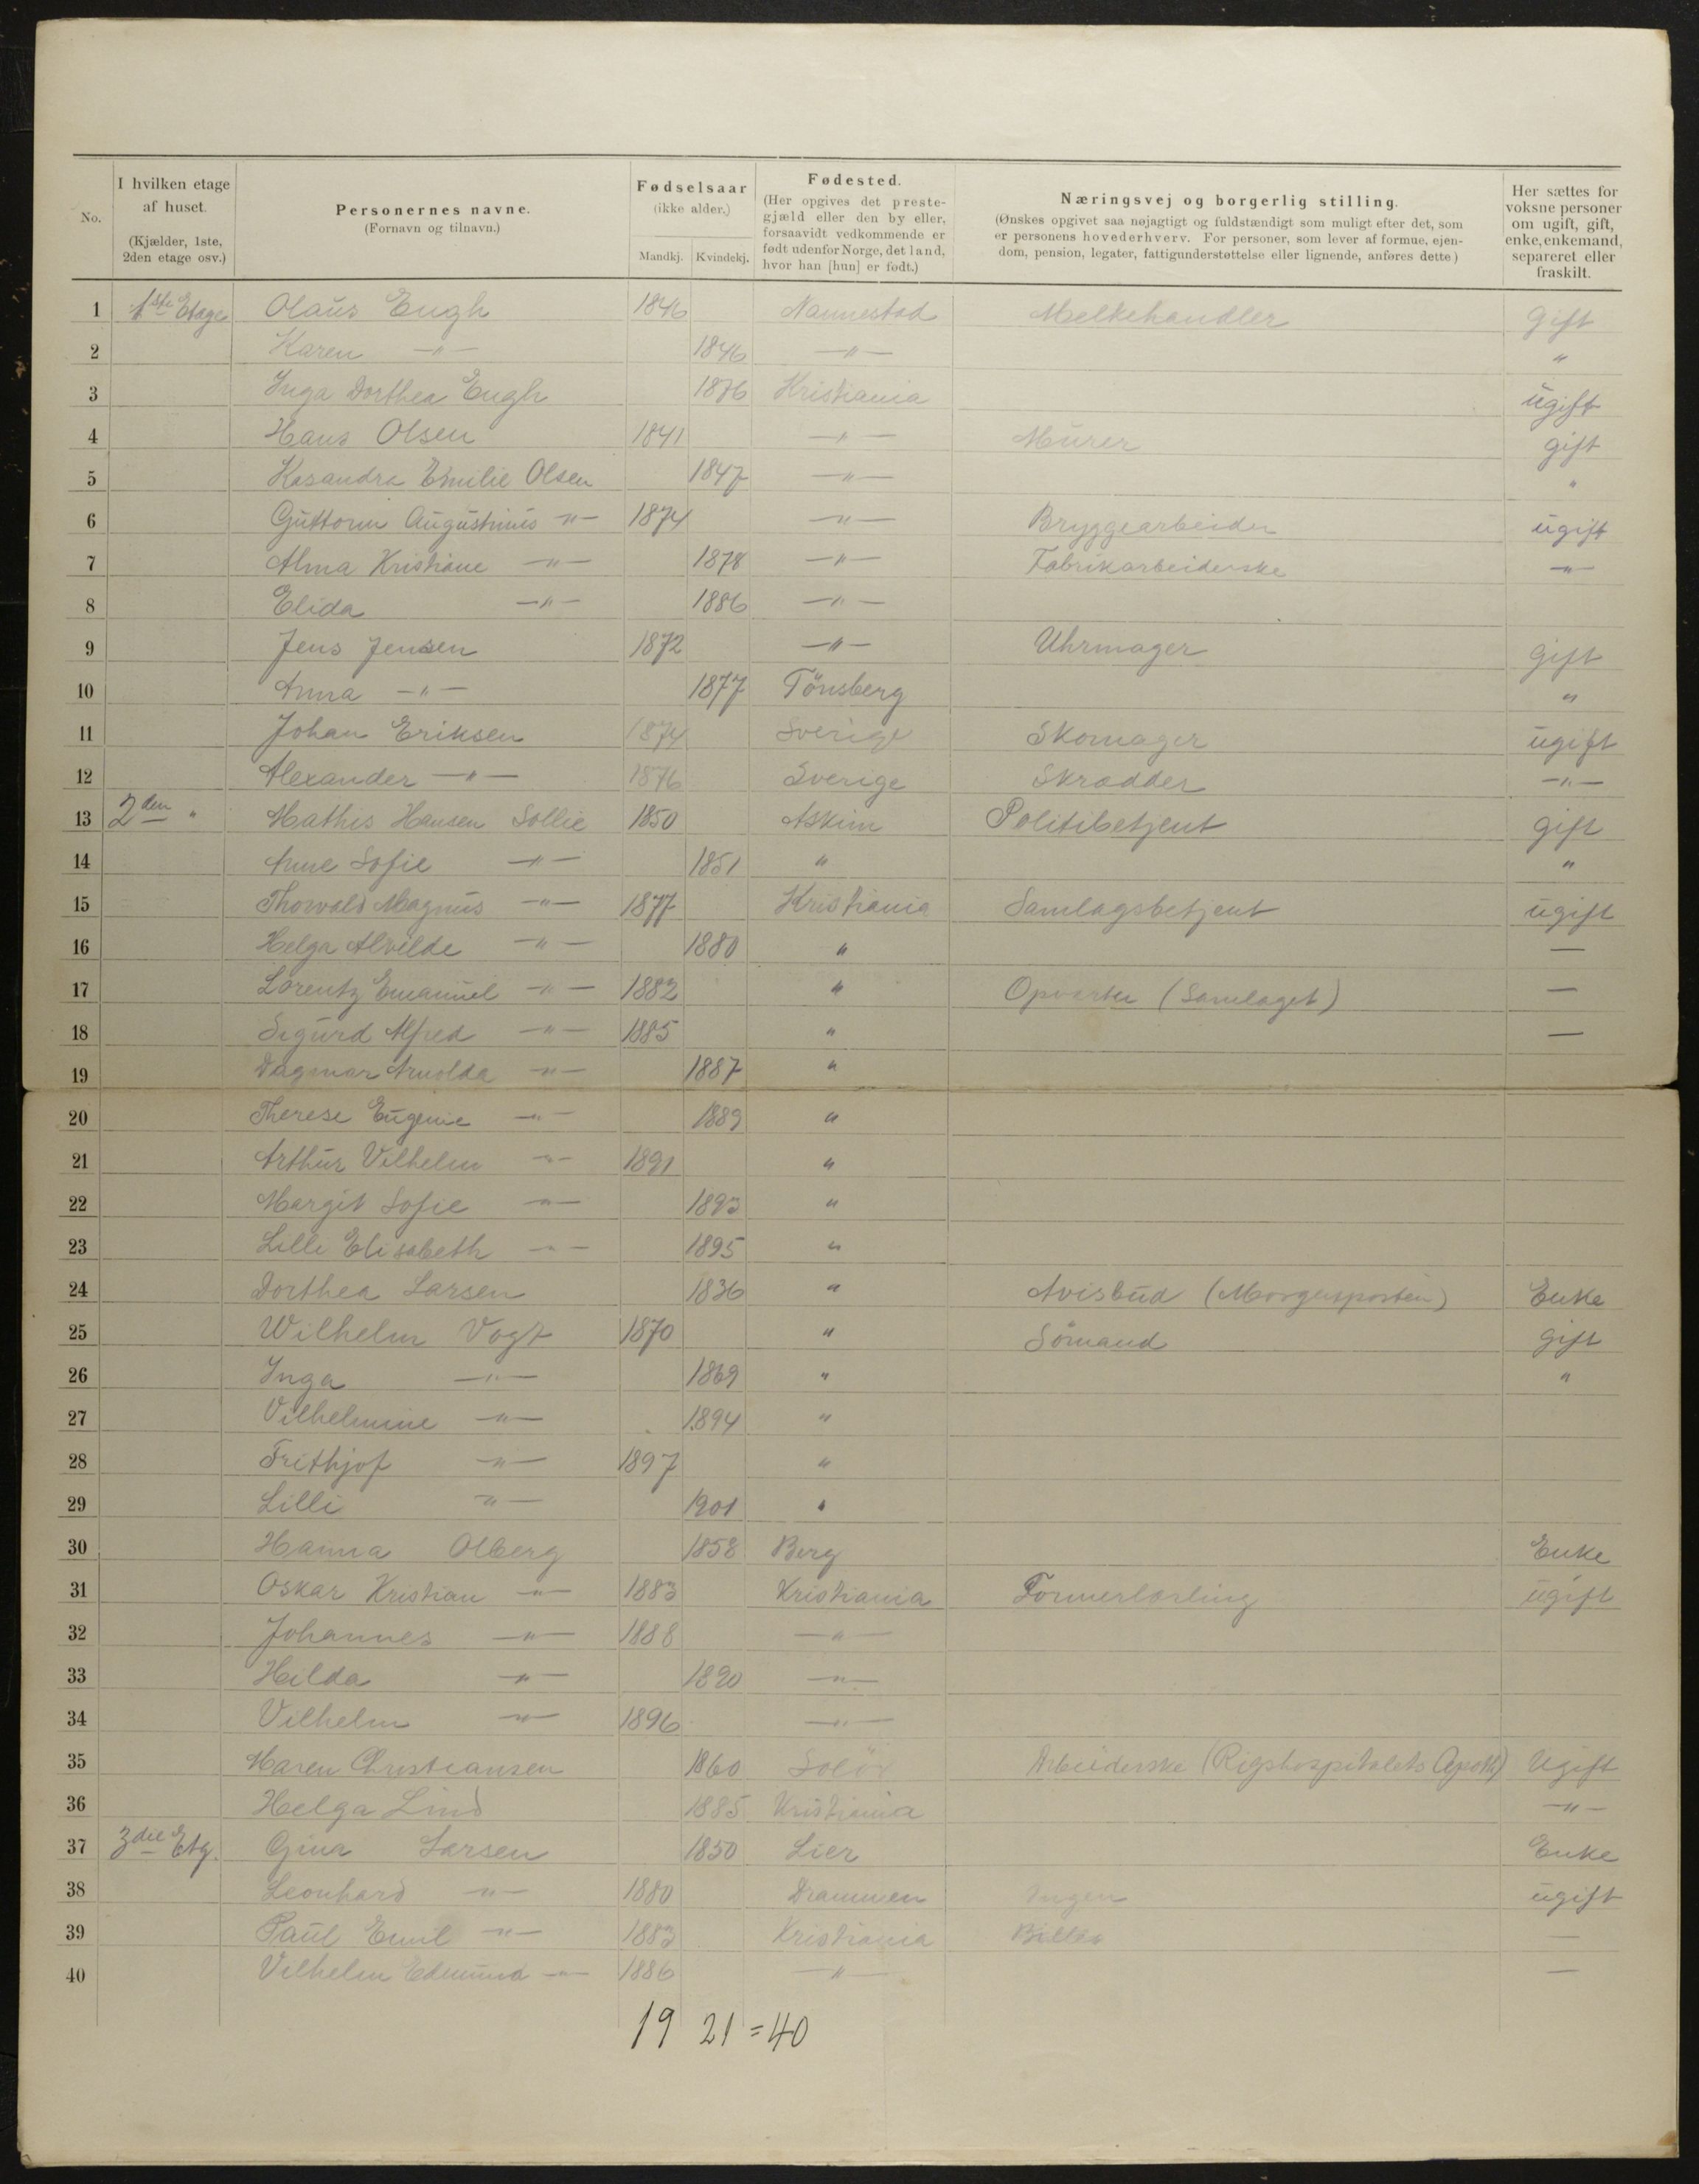 No. | I hvilken etage af huset. (Kjælder, 1ste, 2den etage osv.) | Personernes navne. (Fornavn og tilnavn.) | Fødselsaar (ikke alder.) Mandkj. Kvindekj. | Fødested. (Her opgives det prestegjæld eller den by eller, forsaavidt vedkommende er født udenfor Norge, det land, hvor han [hun] er født.) | Næringsvej og borgerlig stilling. (Ønskes opgivet saa nøjagtigt og fuldstændigt som muligt efter det, som er personens hovederhverv. For personer, som lever af formue, ejendom, pension, legater, fattigunderstøttelse eller lignende, anføres dette) | Her sættes for voksne personer om ugift, gift, enke, enkemand, separeret eller fraskilt.
1 1ste Etage Olaus Engh 1846 Nannestad Melkehandler gift
2 Karen —"— 1846 —"— "
3 Inga Dorthea Engh 1876 Kristiania ugift
4 Hans Olsen 1841 —"— Murer gift
5 Kasandra Emilie Olsen 1847 —"— "
6 Guttorm Augustinus —"— 1874 —"— Bryggearbeider ugift
7 Alma Kristiane —"— 1878 —"— Fabrikarbeiderske —"—
8 Elida —"— 1886 —"—
9 Jens Jensen 1872 —"— Uhrmager gift
10 Anna —"— 1877 Tönsberg "
11 Johan Eriksen 1874 Sverige Skomager ugift
12 Alexander —"— 1876 Sverige Skrædder —"—
13 2den " Mathis Hansen Sollie 1850 Askim Politibetjent gift
14 Anne Sofie —"— 1851 " "
15 Thorvald Magnus —"— 1877 Kristiania Samlagsbetjent ugift
16 Helga Alvilde —"— 1880 " —
17 Lorentz Emanuel —"— 1882 " Opvarter (Samlaget) —
18 Sigurd Alfred —"— 1885 " —
19 Dagmar Arnolda —"— 1887 "
20 Therese Eugenie —"— 1889 "
21 Arthur Vilhelm —"— 1891 "
22 Margit Sofie —"— 1893 "
23 Lilli Elisabeth —"— 1895 "
24 Dorthea Larsen 1836 " Avisbud (Morgenposten) Enke
25 Wilhelm Vogt 1870 " Sömand gift
26 Inga —"— 1869 " "
27 Vilhelmine —"— 1894 "
28 Frithjof —"— 1897 "
29 Lilli —"— 1901 "
30 Hanna Olberg 1858 Berg Enke
31 Oskar Kristian —"— 1883 Kristiania Formerlærling ugift
32 Johannes —"— 1888 —"—
33 Hilda —"— 1890 —"—
34 Vilhelm —"— 1896 —"—
35 Maren Christiansen 1860 Solör Arbeiderske (Rigshospitalets Apoth) Ugift
36 Helga Lind 1885 Kristiania —"—
37 3die Etg. Gina Larsen 1850 Lier Enke
38 Leonhard —"— 1880 Drammen Ingen ugift
39 Paul Emil —"— 1883 Kristiania —
40 Vilhelm —"— 1886 —"— —
19 21 = 40